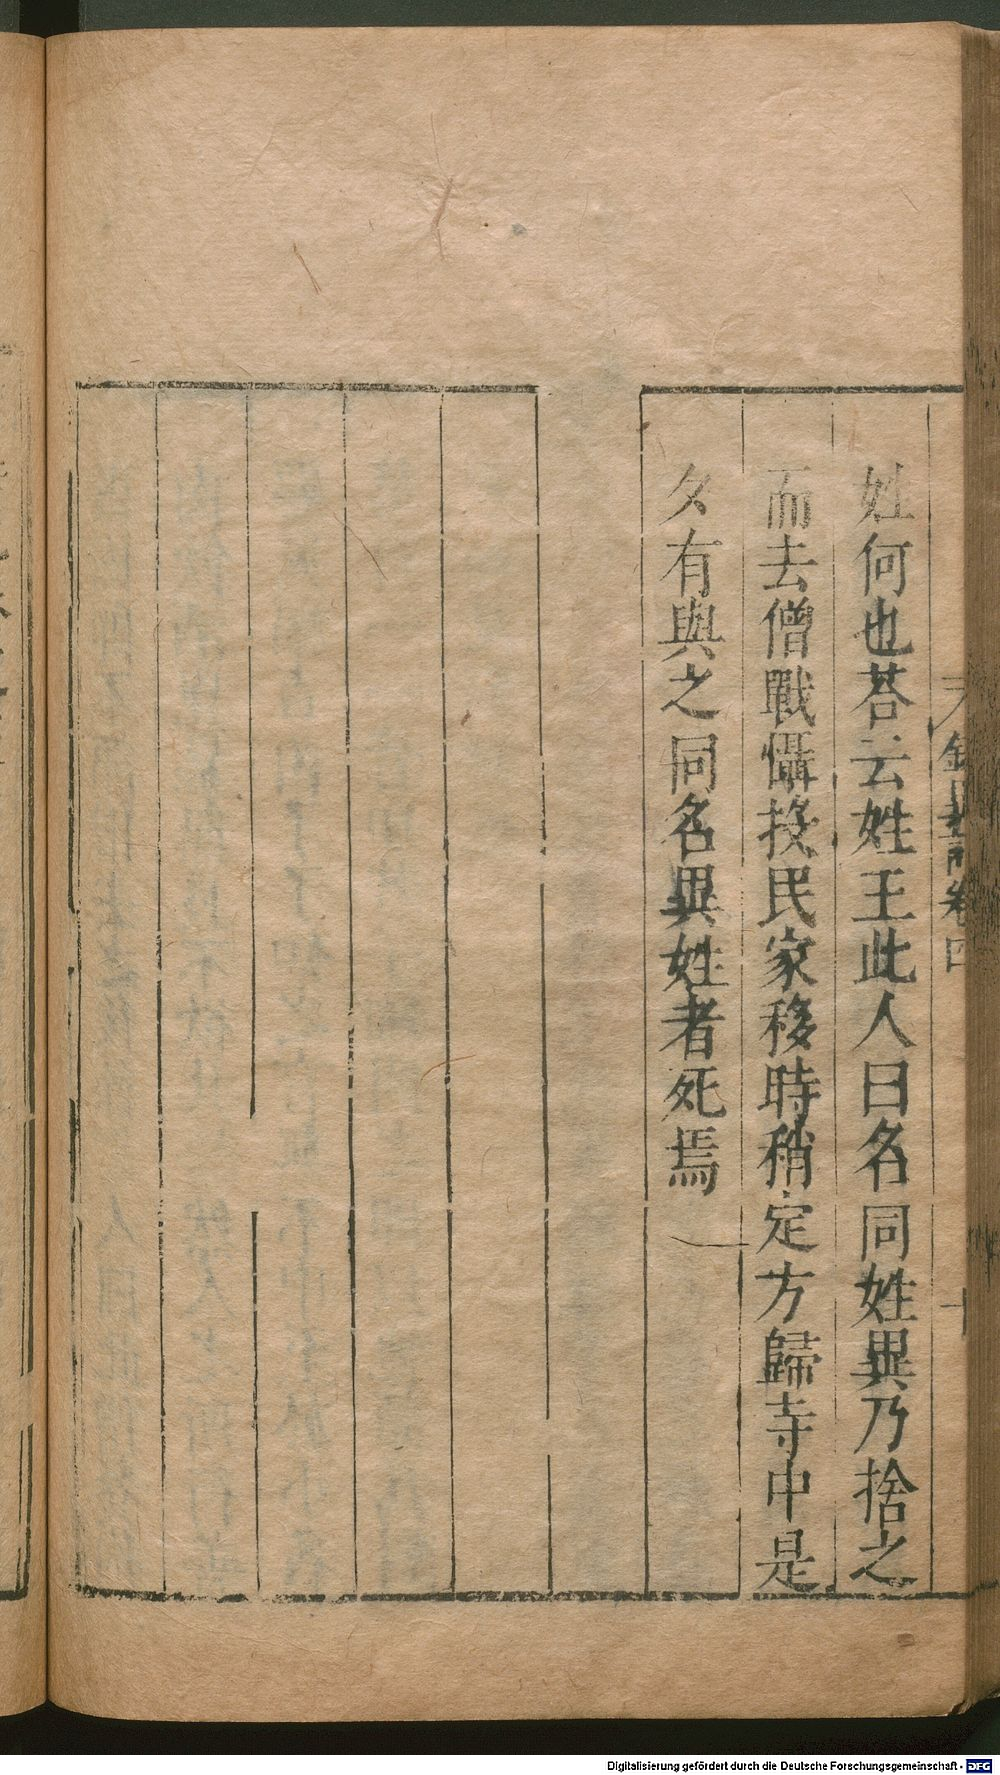 姓何也荅云姓王此人曰名同姓異乃捨之
而去僧戰懾投民家移時稍定方歸寺中是
夕有與之同名異姓者死焉
卷四
Digitalisierung gefördert durch die Deutsche Forschungsgemeinschaft - DFG